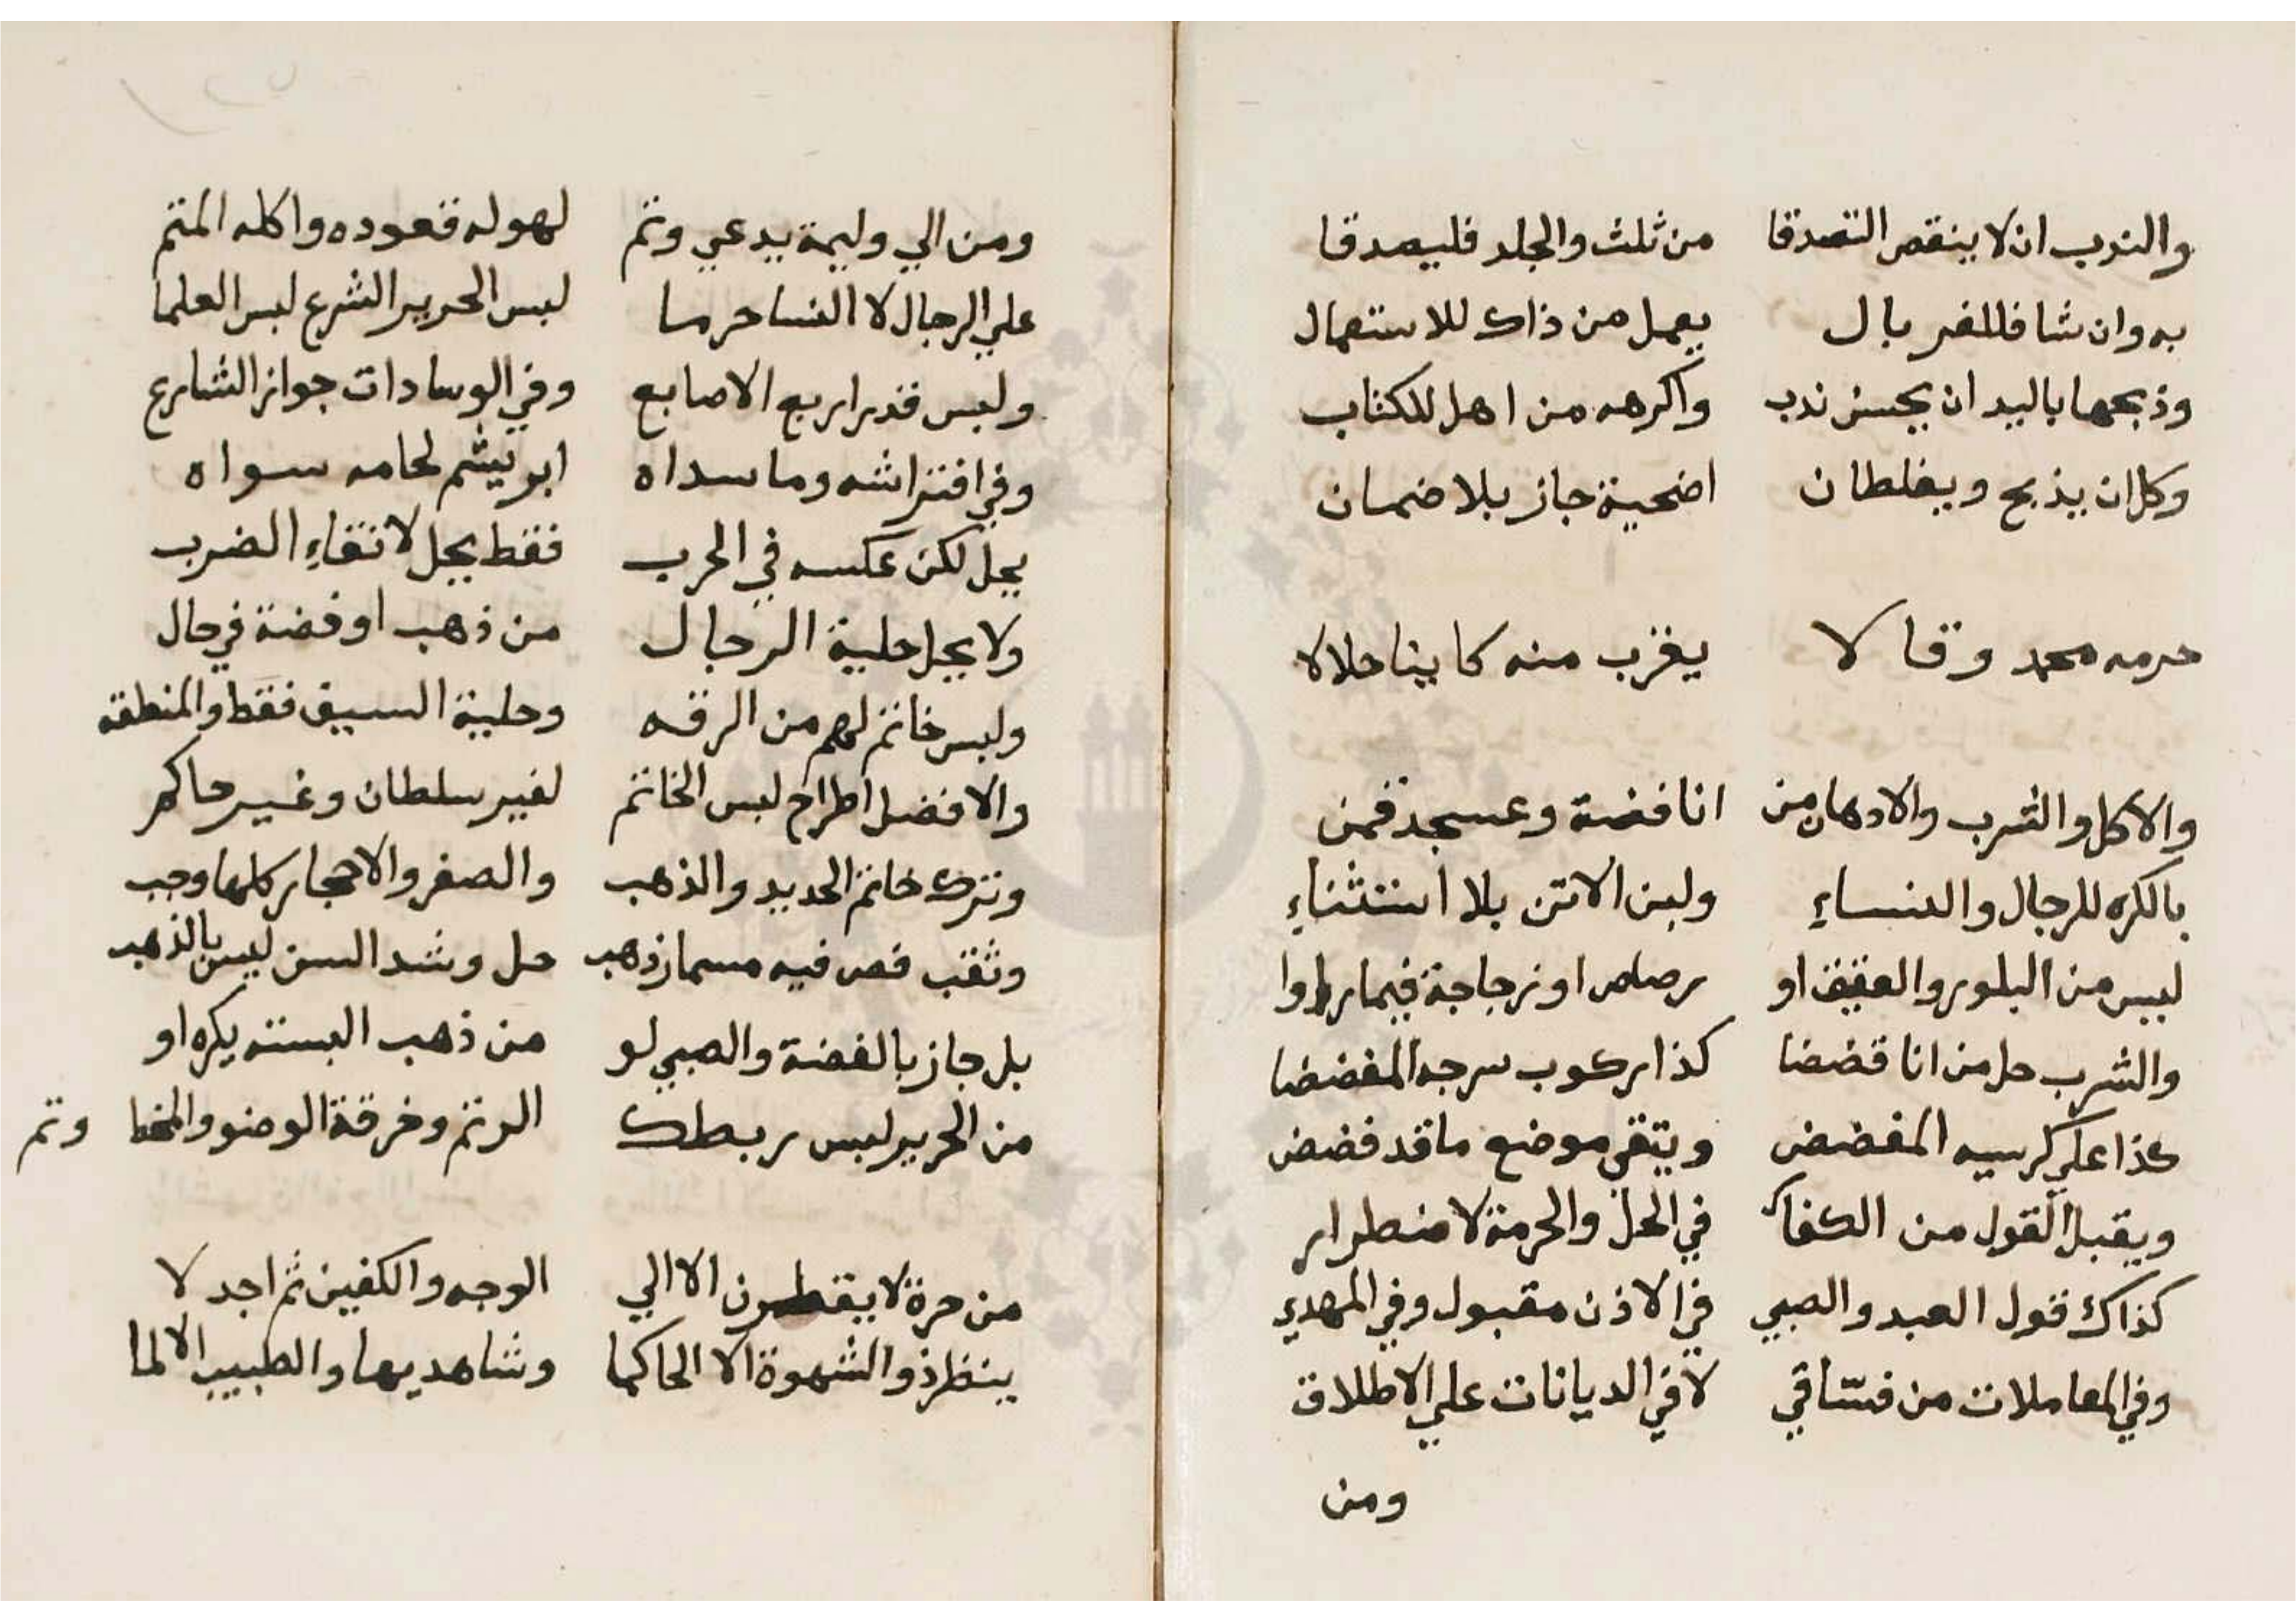 والندب ان لا ينقص التصدقا من ثلث والجلد فليصدقا
به وان شا فللغربال يعمل من ذاك للاستعمال
وذبحها باليد ان يحسن ندب واكرهه من اهل للكتاب
وكل ان يذبح ويغلطان اضحية جاز بلا ضمان
حرمه محمد وقالا يقرب منه كا بينا حلالا
والاكل والشرب والادهان من انا فضة وعسجد قمن
بالكره للرجال والنساء ولبن الاتن بلا استثناء
ليس من البلور والعقيق او رصاص او زجاجة فيما راوا
والشرب حل من انا فضضا كذا ركوب سرجه المفضضا
كذا علي كرسيه المفضض ويتقي موضع ما قد فضض
ويقبل القول من الكفار في الحل والحرمة لاضطرار
كذاك قول العبد والصبي في الاذن مقبول وفي المهدي
وفي المعاملات من فساق لا في الديانات علي الاطلاق
ومن
ومن الي وليمة يدعي وثم لهو له قعوده واكله المتم
علي الرجال لا النسا حرما لبس الحرير الشرع لبس العلما
ولبس قدر اربع الاصابع وفي الوسادات جواز الشارع
وفي افتراشه وما سداه ابريشم لحامه سواه
يحل لكن عكسه في الحرب فقط يحل لاتقاء الضرب
ولا يحل حلية الرجال من ذهب او فضة في حال
ولبس خاتم لهم من الرقه وحلية السيف فقط والمنطقه
والافضل اطراح لبس الخاتم لغير سلطان وغير حاكم
وترك خاتم الحديد والذهب والصفر والاحجار كلها وجب
وثقب فص فيه مسمار ذهب حل وشد السن ليس بالذهب
بل جاز بالفضة والصبي لو من ذهب البسته يكره او
من الحرير لبس ربطك الرتم وخرقة الوضو والمخا وتم
من حرة لا ينظرون الا الي الوجه والكفين ثم اجد لا
ينظر ذو الشهوة الا الحاكما وشاهديها والطبيب الالما